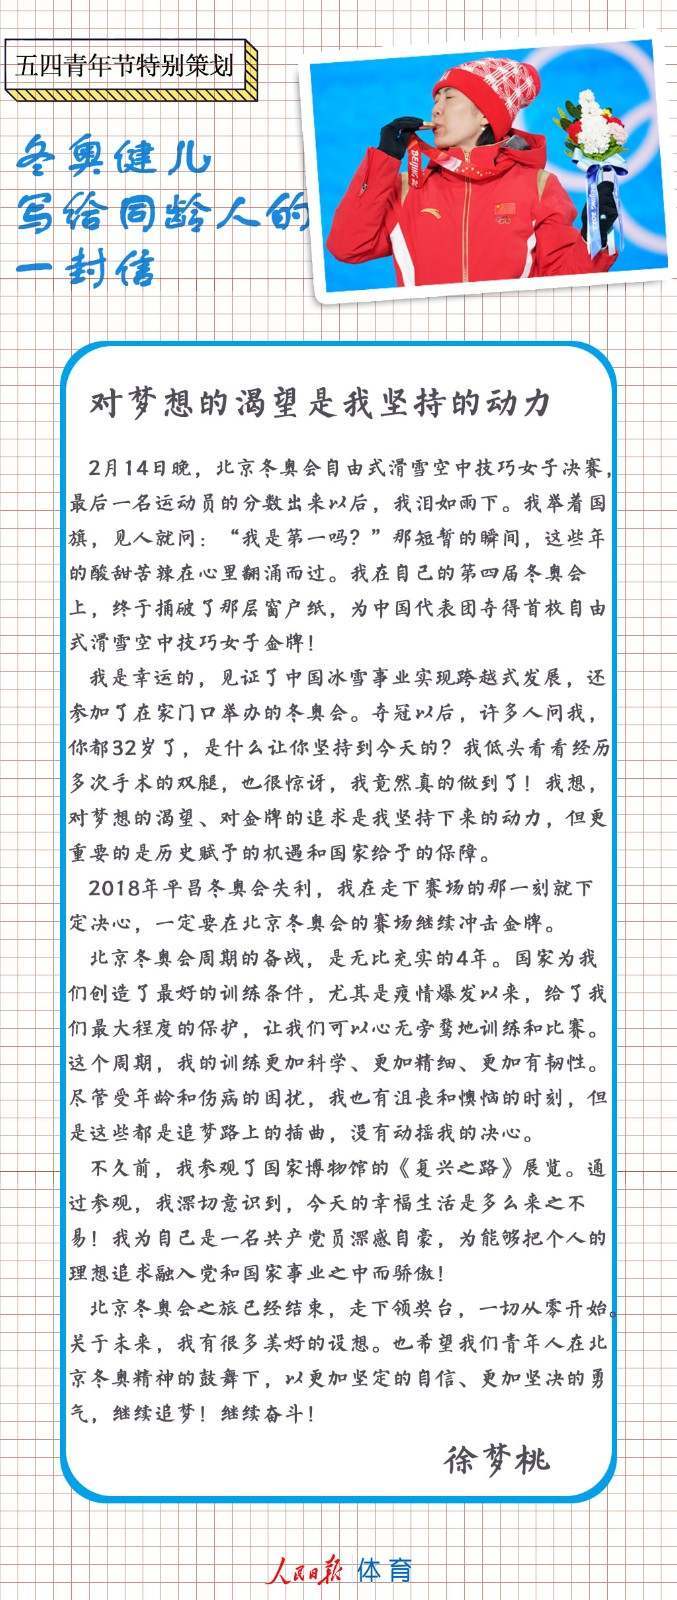 五四青年节特别策划
冬奥健儿
写给同龄人的
一封信
对梦想的渴望是我坚持的动力
2月14日晚，北京冬奥会自由式滑雪空中技巧女子决赛，
最后一名运动员的分数出来以后，我泪如雨下。我举着国
旗，见人就问：“我是第一吗？”那短暂的瞬间，这些年
的酸甜苦辣在心里翻涌而过。我在自己的第四届冬奥会
上，终于捅破了那层窗户纸，为中国代表团夺得首枚自由
式滑雪空中技巧女子金牌！
我是幸运的，见证了中国冰雪事业实现跨越式发展，还
参加了在家门口举办的冬奥会。夺冠以后，许多人问我，
你都32岁了，是什么让你坚持到今天的？我低头看看经历
多次手术的双腿，也很惊讶，我竟然真的做到了！我想，
对梦想的渴望、对金牌的追求是我坚持下来的动力，但更
重要的是历史赋予的机遇和国家给予的保障。
2018年平昌冬奥会失利，我在走下赛场的那一刻就下
定决心，一定要在北京冬奥会的赛场继续冲击金牌。
北京冬奥会周期的备战，是无比充实的4年。国家为我
们创造了最好的训练条件，尤其是疫情爆发以来，给了我
们最大程度的保护，让我们可以心无旁骛地训练和比赛。
这个周期，我的训练更加科学、更加精细、更加有韧性。
尽管受年龄和伤病的困扰，我也有沮丧和懊恼的时刻，但
是这些都是追梦路上的插曲，没有动摇我的决心。
不久前，我参观了国家博物馆的《复兴之路》展览。通
过参观，我深切意识到，今天的幸福生活是多么来之不
易！我为自己是一名共产党员深感自豪，为能够把个人的
理想追求融入党和国家事业之中而骄傲！
北京冬奥会之旅已经结束，走下领奖台，一切从零开始。
关于未来，我有很多美好的设想。也希望我们青年人在北
京冬奥精神的鼓舞下，以更加坚定的自信、更加坚决的勇
气，继续追梦！继续奋斗！
徐梦桃
人民日报 体育